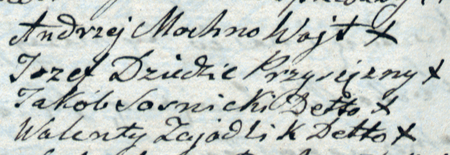 Andrzej Mochno Wojt +
Jozef Dziedzic Przysięzny +
Jakób Sosnicki Detto +
Walenty Zajadlik Detto +